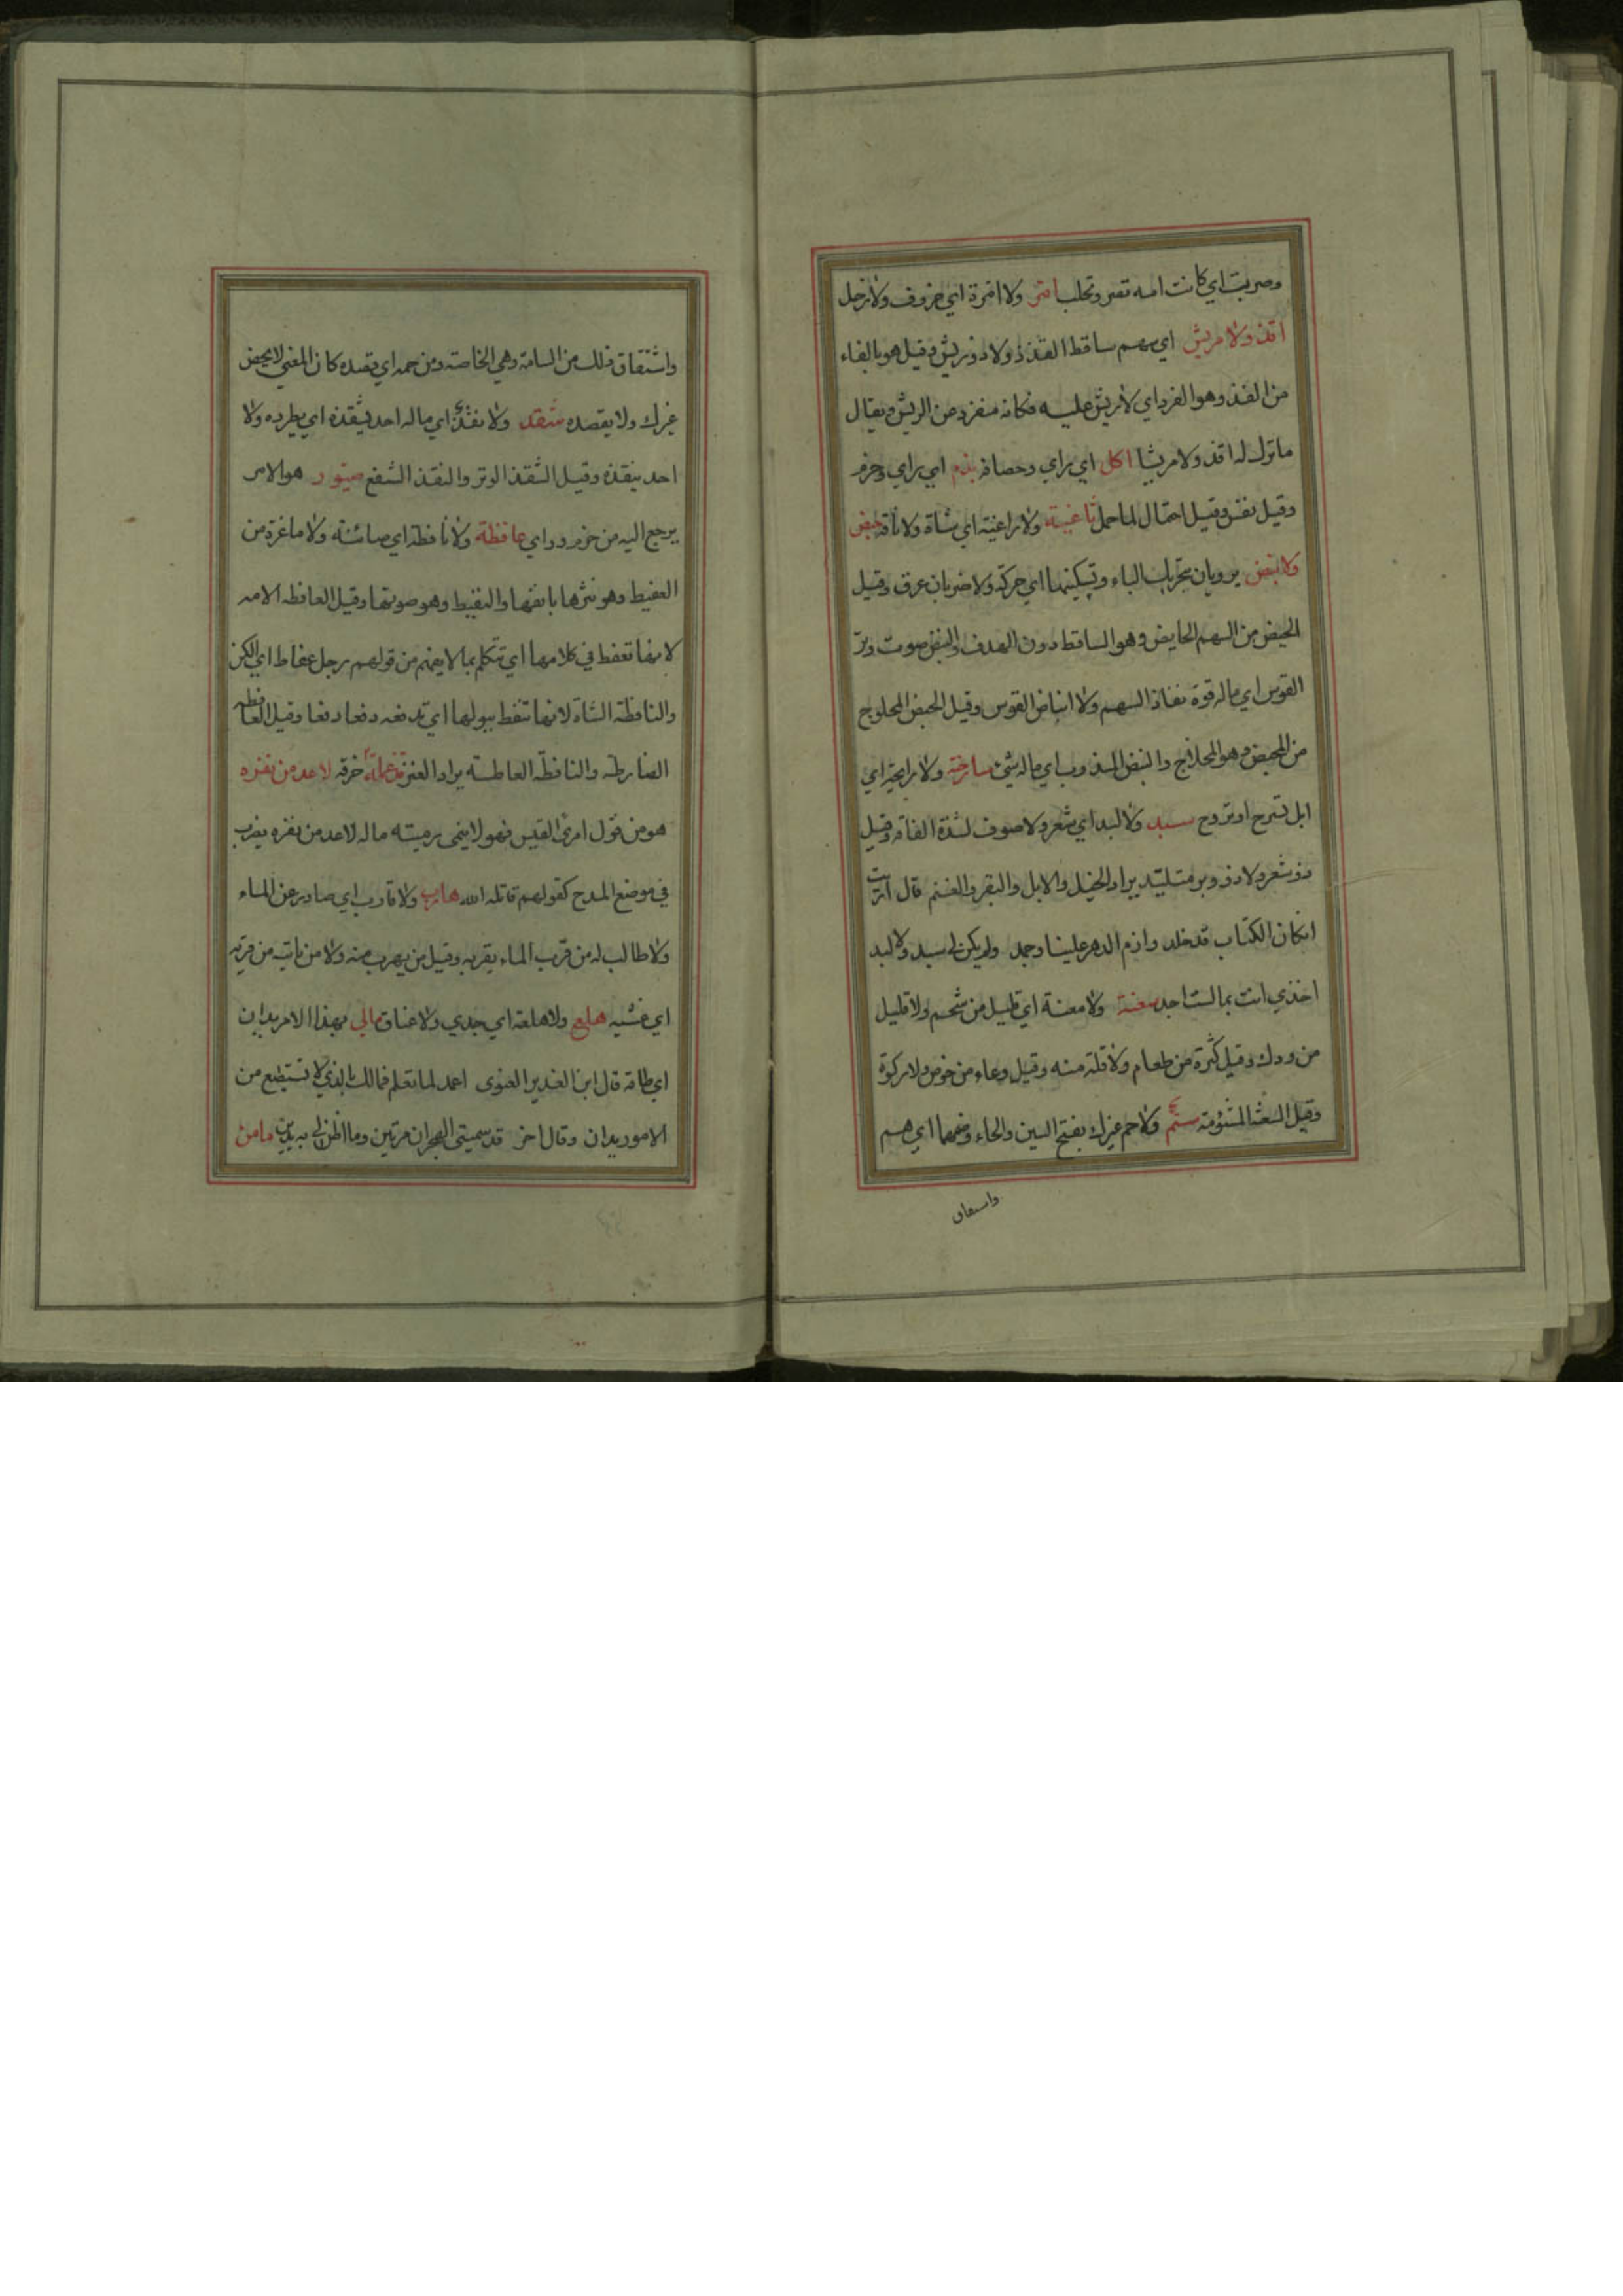 وصربت اي كانت امه تصر وتحلب امّر ولا امّرة اي خروف ولا رخل
اقذ ولا مريش اي سهم ساقط القذذ ولا ذو ريش وقيل هو بالفاء
من الفذ وهو الفرد اي لا ريش عليه فكانه منفرد من الريش ويقال
ما ترك له اقذ ولا مريشا اكل اي راي وحصافه بذم اي راي وحزم
وقيل نفس وقيل احتمال لما حمل ثاغية ولا راغية اي شاة ولا ناقة حبض
ولا نبض يرويان بتحريك الباء وتسكينها اي حركة ولا ضربان عرق وقيل
الحبض من السهم الحابض وهو الساقط دون الهدف والنبض صوت وتر
القوس اي ماله قوة نفاذ السهم ولا انباض القوس وقيل الحبض المحلوج
من المحبض وهو المحلاج والنبض المندوب اي ماله شئ سارحة ولا رايحة اي
ابل تسرح او تروح سبد ولا لبد اي شعر ولا صوف لشدة الفاقه وقيل
ذو شعر ولا ذو وبر متلبد يراد الخيل والابل والبقر والغنم قال
ان كان الكتاب قد خلد وازم الدهر علينا وجمد ولم يكن لي سبد ولا لبد
اخذي انت بما لست اجد سعنة ولا معنة اي قليل من شحم ولا قليل
من ودك وقيل كثرة من طعام ولا قلة منه وقيل وعاء من خوص ولا ركوة
وقيل السعنة المشؤمة سم ولا حم غيرك بفتح السين والحاء وضمهما اي هم
واشتقاق
واشتقاق ذلك من السامة وهي الخاصة ومن حمه اي قصده كان المعني لا يخص
غيرك ولا يقصده شقذ ولا نقذ اي ماله احد يشقذه اي يطرده ولا
احد ينقذه وقيل الشقذ الوتر والنقذ الشفع صيور هو الامر
يرجع اليه من حزم وراي عافطة ولا نافطة اي ضائنة ولا ماعزة من
العفيط وهو نثرها بانفها والنفيط وهو صوتها وقيل العافطه الامه
لانها تعفط في كلامها اي تتكلم بما لا يفهم من قولهم رجل عفاط اي الكن
والنافطة الشاة لانها تنفط ببولها اي تدفعه دفعا دفعا وقيل العافطه
الضارطه والنافطة العاطسة يراد العنز قذعملة خرقه لا عد من نفره
هو من قول امرئ القيس فهو لا ينمى رميته ماله لا عد من نفره يضرب
في موضع المدح كقولهم قاتله الله هارب ولا قارب اي صادر عن الماء
ولا طالب له من قرب الماء يقربه وقيل من يهرب منه ولا من ياتيه من قربه
اي غشيه هلع ولا هلعة اي جدي ولا عناق مالي بهذا الامر يدان
اي طاقة قال ابن الغدير الغنوى اعمد لما تعلم فمالك بالذي لا تستطيع من
الامور يدان وقال اخر قد سميتى الهجران مرتين وما اظن لي به يدين ما من